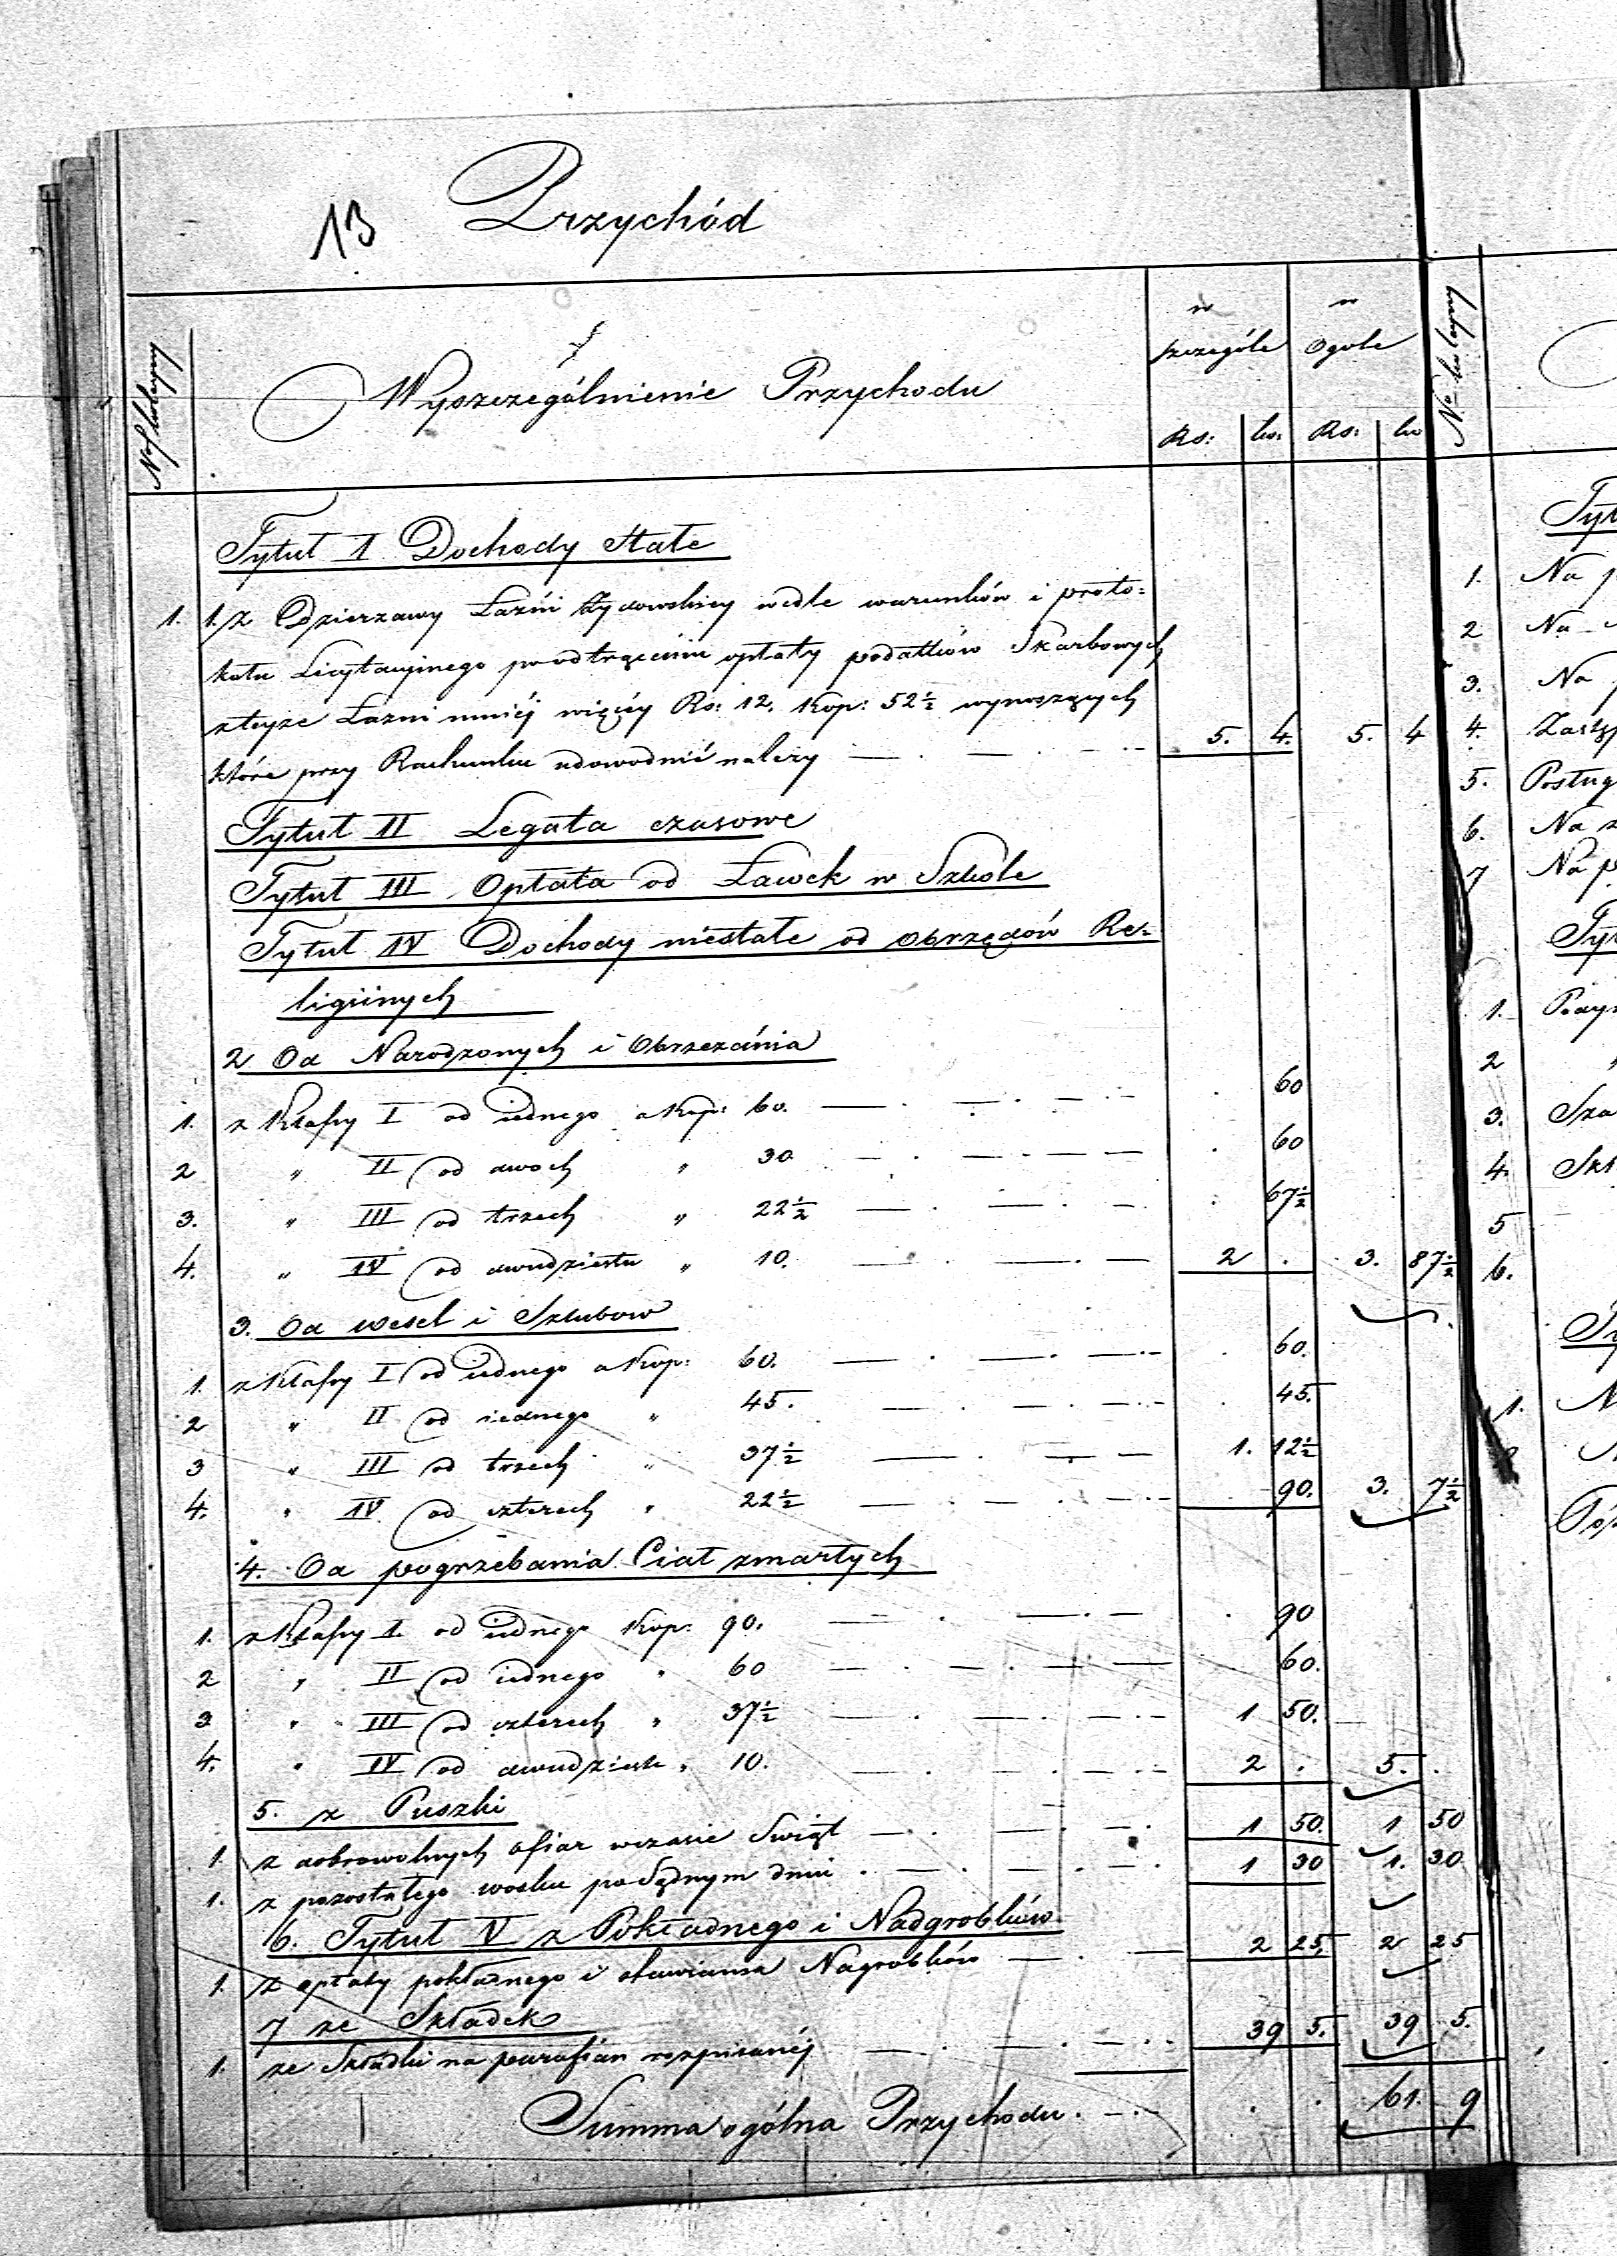 13 Przychód
No kolejny
Wyszczególnienie Przychodu
w szczególe
w Ogole
Rs: ko: Rs: ko
No kolejny
Tytuł I Dochody Stałe
1. 1. z Dzierzawy Łaźni Żydowskiey wedle warunków i proto=
kołu Licytacyinego po odtrąceniu opłaty podatków Skarbowych
z teyże Łazni mniéj więcéy Rs: 12. Kop: 52½ wynoszących
które przy Rachunku udowodnić należy 5. 4. 5. 4
Tytuł II Legata czasowe
Tytuł III Opłata od Ławek w Szkole
Tytuł IV Dochody niestałe od obrzędów Re=
ligiinych
2 Od Narodzonych i Obrzezánia
1. z Klassy I od iednego a Kop: 60. 60
2 „ II od dwoch „ 30 60
3. „ III od trzech „ 22½ 67½
4. „ IV od dwudziestu „ 10. 2 . 3. 87½
3. Od wesel i Szlubow
1. z Klassy I od iednego a Kop: 60. 60.
2 „ II od iednego „ 45. 45.
3 „ III od trzech „ 37½ 1. 12½
4. „ IV od czterech „ 22½ 90. 3. 7½
4. Od pogrzebania Ciał zmarłych
1. z Klassy I. od iednego Kop: 90. 90
2 „ II od iednego „ 60 60.
3 „ III od czterech „ 37½ 1 50.
4. „ IV od dwudziestu „ 10. 2 . 5. .
5. z Puszki
1. z dobrowolnych ofiar wczasie Swiąt 1 50. 1 50
1. z pozostałego wosku po Sądnym dniu 1 30 1. 30
6. Tytuł V z Pokładnego i Nadgrobków
1. z opłaty pokładnego i stawiania Nagrobków 2 25. 2 25
7 ze Składek
1. ze Składki na parafian rozpisanéj 39 5. 39 5.
Summa ogólna Przychodu . . 61. 9
1. Na
2 Na
3. Na
4.
5. Posług
6. Na
7 Na
1.
2
3.
4.
5
6.
1.